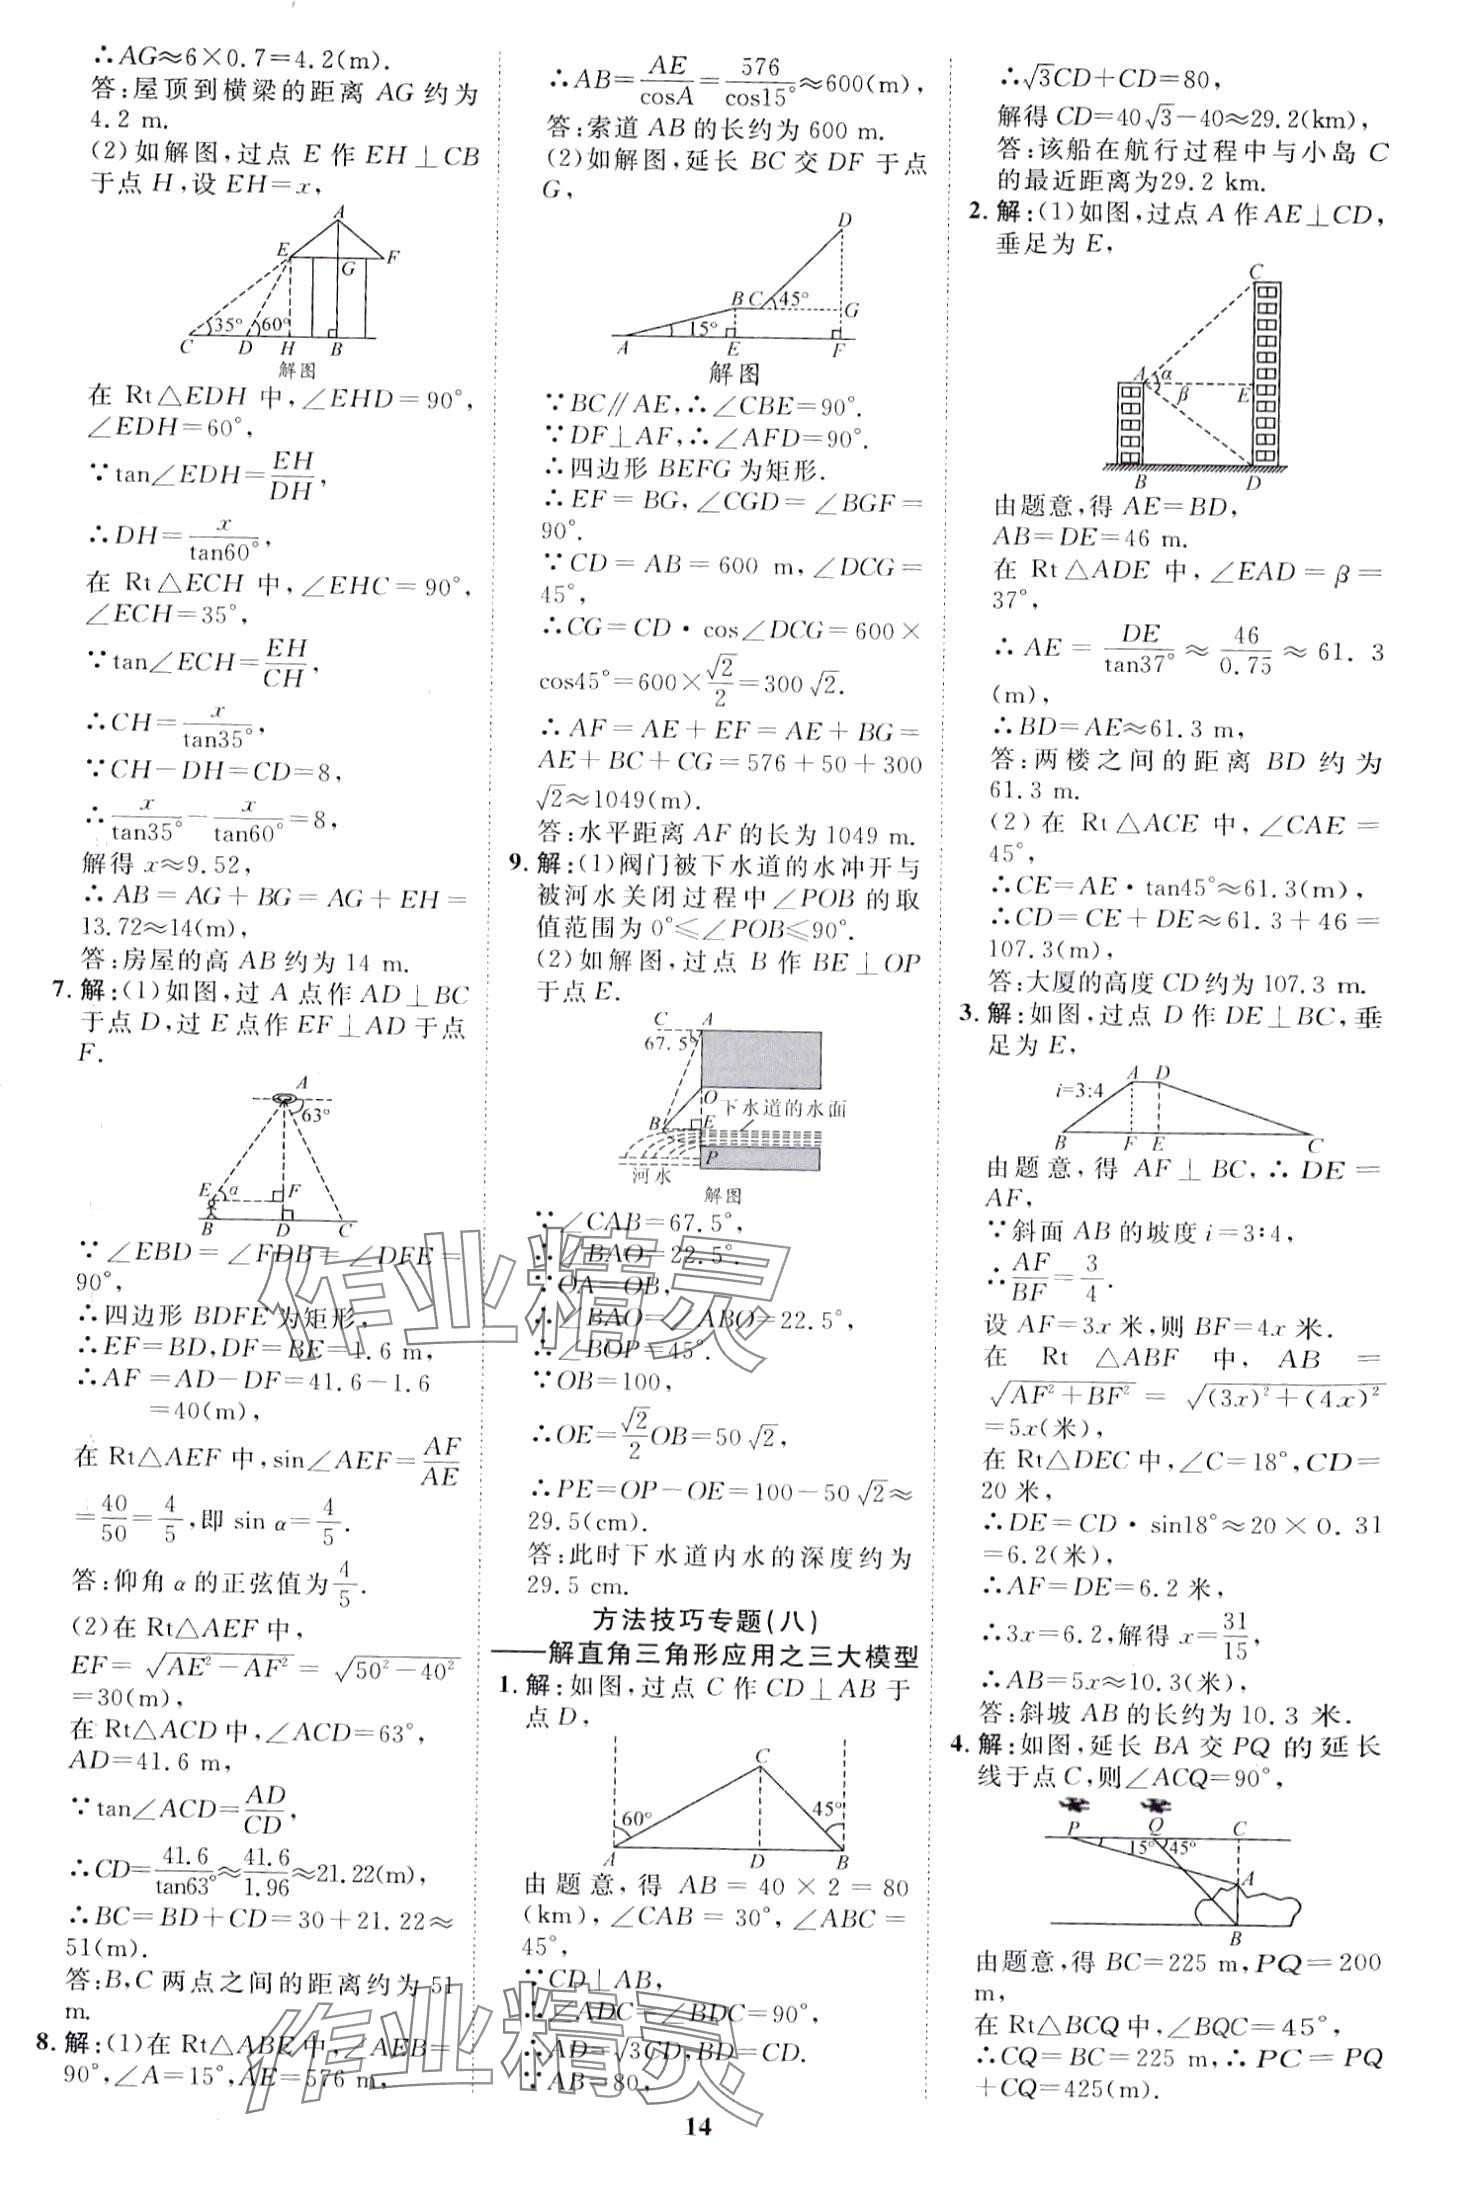 ∴AG≈6×0.7=4.2(m).
答:屋顶到横梁的距离 AG 约为
4.2 m.
(2)如解图,过点 E 作 EH⊥CB
于点 H,设 EH=x,
A
E
F
G
35° 60°
C D H B
解图
在 Rt△EDH 中,∠EHD=90°,
∠EDH=60°,
∵tan∠EDH=EH/DH,
∴DH=x/tan60°,
在 Rt△ECH 中,∠EHC=90°,
∠ECH=35°,
∵tan∠ECH=EH/CH,
∴CH=x/tan35°,
∵CH-DH=CD=8,
∴x/tan35°-x/tan60°=8,
解得 x≈9.52,
∴AB=AG+BG=AG+EH=
13.72≈14(m),
答:房屋的高 AB 约为 14 m.
7.解:(1)如图,过 A 点作 AD⊥BC
于点 D,过 E 点作 EF⊥AD 于点
F.
A
63°
E α F
B D C
∵∠EBD=∠FDB=∠DFE=
90°,
∴四边形 BDFE 为矩形,
∴EF=BD,DF=BE=1.6 m,
∴AF=AD-DF=41.6-1.6
=40(m),
在 Rt△AEF 中,sin∠AEF=AF/AE
=40/50=4/5,即 sin α=4/5.
答:仰角 α 的正弦值为4/5.
(2)在 Rt△AEF 中,
EF=√(AE²-AF²)=√(50²-40²)
=30(m),
在 Rt△ACD 中,∠ACD=63°,
AD=41.6 m,
∵tan∠ACD=AD/CD,
∴CD=41.6/tan63°≈41.6/1.96≈21.22(m),
∴BC=BD+CD=30+21.22≈
51(m).
答:B,C 两点之间的距离约为 51
m.
8.解:(1)在 Rt△ABE 中,∠AEB=
90°,∠A=15°,AE=576 m,
∴AB=AE/cosA=576/cos15°≈600(m),
答:索道 AB 的长约为 600 m.
(2)如解图,延长 BC 交 DF 于点
G,
D
B C 45° G
15°
A E F
解图
∵BC∥AE,∴∠CBE=90°.
∵DF⊥AF,∴∠AFD=90°.
∴四边形 BEFG 为矩形.
∴EF=BG,∠CGD=∠BGF=
90°.
∵CD=AB=600 m,∠DCG=
45°,
∴CG=CD·cos∠DCG=600×
cos45°=600×√2/2=300√2.
∴AF=AE+EF=AE+BG=
AE+BC+CG=576+50+300
√2≈1049(m).
答:水平距离 AF 的长为 1049 m.
9.解:(1)阀门被下水道的水冲开与
被河水关闭过程中∠POB 的取
值范围为 0°≤∠POB≤90°.
(2)如解图,过点 B 作 BE⊥OP
于点 E.
C A
67.5°
O
下水道的水面
B E
P
河水
解图
∵∠CAB=67.5°,
∴∠BAO=22.5°.
∵OA=OB,
∴∠BAO=∠ABO=22.5°,
∴∠BOP=45°.
∵OB=100,
∴OE=√2/2OB=50√2,
∴PE=OP-OE=100-50√2≈
29.5(cm).
答:此时下水道内水的深度约为
29.5 cm.
方法技巧专题(八)
——解直角三角形应用之三大模型
1.解:如图,过点 C 作 CD⊥AB 于
点 D,
C
60° 45°
A D B
由题意,得 AB=40×2=80
(km),∠CAB=30°,∠ABC=
45°,
∵CD⊥AB,
∴∠ADC=∠BDC=90°,
∴AD=√3CD,BD=CD.
∵AB=80,
∴√3CD+CD=80,
解得 CD=40√3-40≈29.2(km),
答:该船在航行过程中与小岛 C
的最近距离为29.2 km.
2.解:(1)如图,过点 A 作 AE⊥CD,
垂足为 E,
C
A α
β E
B D
由题意,得 AE=BD,
AB=DE=46 m.
在 Rt△ADE 中,∠EAD=β=
37°,
∴AE=DE/tan37°≈46/0.75≈61.3
(m),
∴BD=AE≈61.3 m,
答:两楼之间的距离 BD 约为
61.3 m.
(2)在 Rt△ACE 中,∠CAE=
45°,
∴CE=AE·tan45°≈61.3(m),
∴CD=CE+DE≈61.3+46=
107.3(m),
答:大厦的高度 CD 约为 107.3 m.
3.解:如图,过点 D 作 DE⊥BC,垂
足为 E,
A D
i=3:4
B F E C
由题意,得 AF⊥BC,∴DE=
AF,
∵斜面 AB 的坡度 i=3:4,
∴AF/BF=3/4.
设 AF=3x 米,则 BF=4x 米.
在 Rt△ABF 中,AB=
√(AF²+BF²)=√((3x)²+(4x)²)
=5x(米),
在 Rt△DEC 中,∠C=18°,CD=
20 米,
∴DE=CD·sin18°≈20×0.31
=6.2(米),
∴AF=DE=6.2 米,
∴3x=6.2,解得 x=31/15,
∴AB=5x≈10.3(米),
答:斜坡 AB 的长约为 10.3 米.
4.解:如图,延长 BA 交 PQ 的延长
线于点 C,则∠ACQ=90°,
P Q C
15° 45°
A
B
由题意,得 BC=225 m,PQ=200
m,
在 Rt△BCQ 中,∠BQC=45°,
∴CQ=BC=225 m,∴PC=PQ
+CQ=425(m).
作业精灵
作业精灵
14